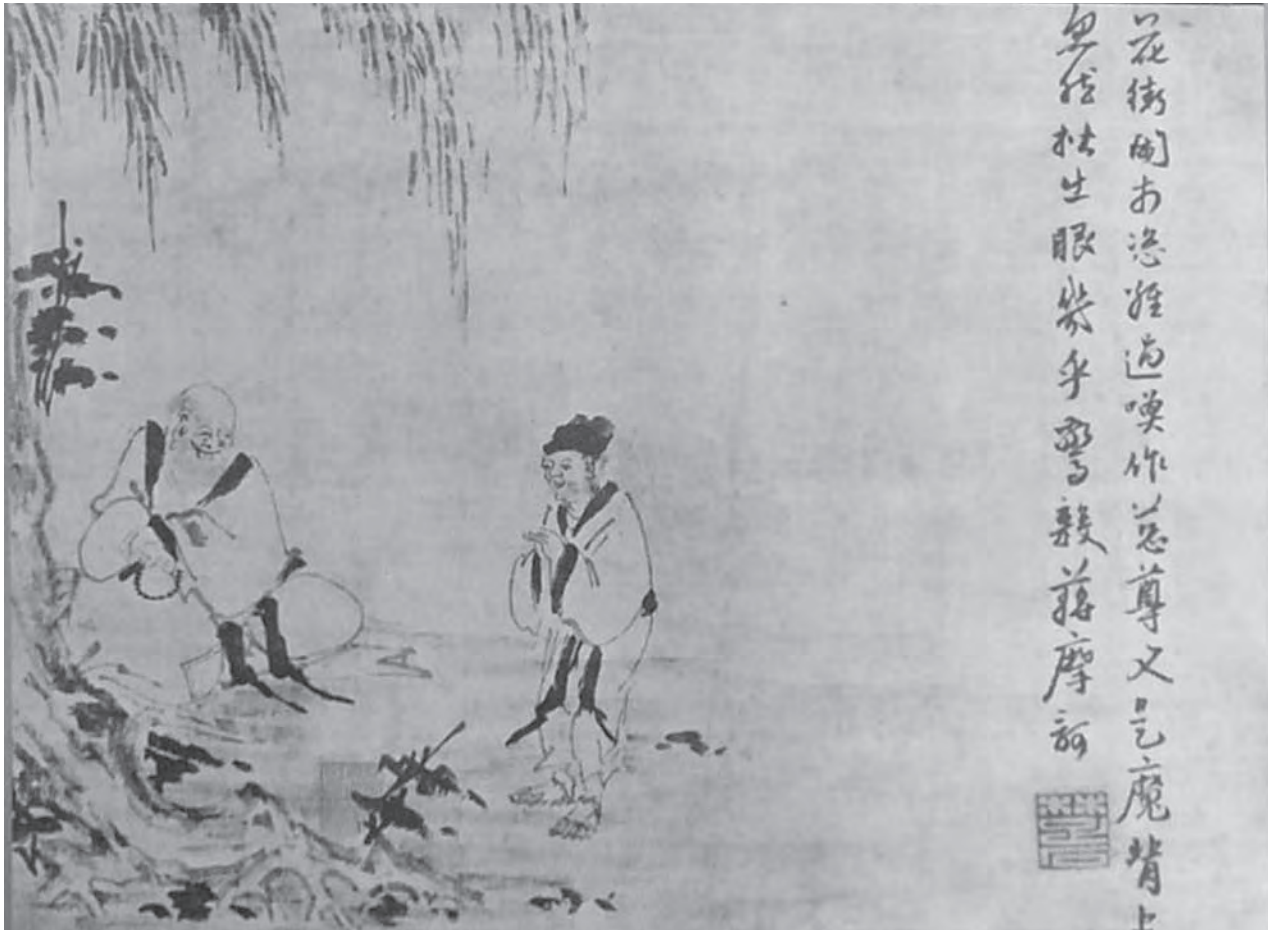 花街閙市恣經過喚作慈尊又是魔背上
忽然生眼幾乎驚殺蔣摩訶